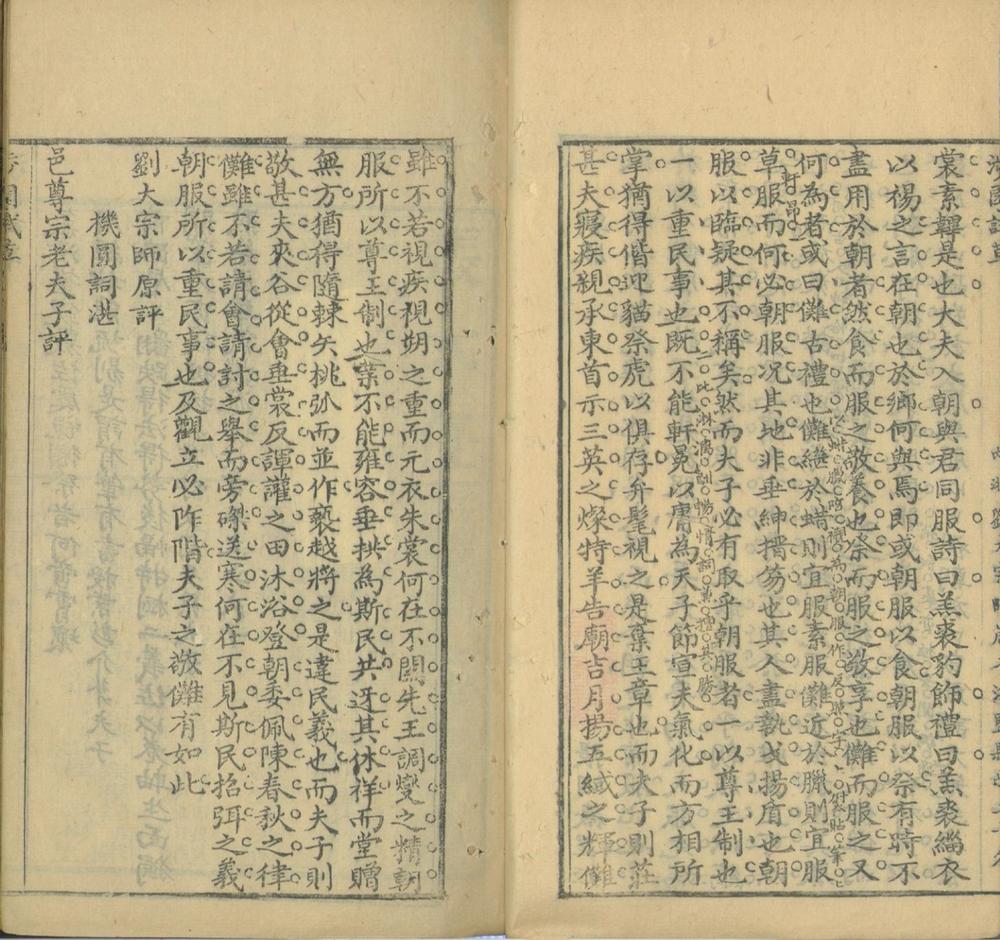 裳素韠是也大夫入朝與君同服詩曰羔裘豹飾禮曰羔裘緇衣
以裼之言在朝也於鄉何與焉即或朝服以食朝服以祭有時不
盡用於朝者然食而服之敬養也祭而服之敬享也儺而服之又
何為者或曰儺古禮也儺繼於蜡則宜服素服儺近於臘則宜服
草服而何必朝服况其地非垂紳搢笏也其人盡執戈揚盾也朝
服以臨疑其不稱矣然而夫子必有取乎朝服者一以尊王制也
一以重民事也既不能軒冕以膚為天子節宣夫氣化而方相所
掌猶得偕迎貓祭虎以俱存弁髦視之是棄王章也而夫子則莊
甚夫寢疾親承東首示三英之燦特羊告廟吉月揚五緎之輝儺
雖不若視疾視朔之重而元衣朱裳何在不關先王調燮之精朝
服所以尊王制也業不能雍容垂拱為斯民共迓其休祥而堂贈
無方猶得隨棘矢桃弧而並作褻越將之是違民義也而夫子則
敬甚夫夾谷從會垂裳反讙之田沐浴登朝委佩陳春秋之律
儺雖不若請會請討之舉而旁磔送寒何在不見斯民招弭之義
朝服所以重民事也及觀立必阼階夫子之敬儺有如此
劉大宗師原評
機圓詞湛
邑尊宗老夫子評